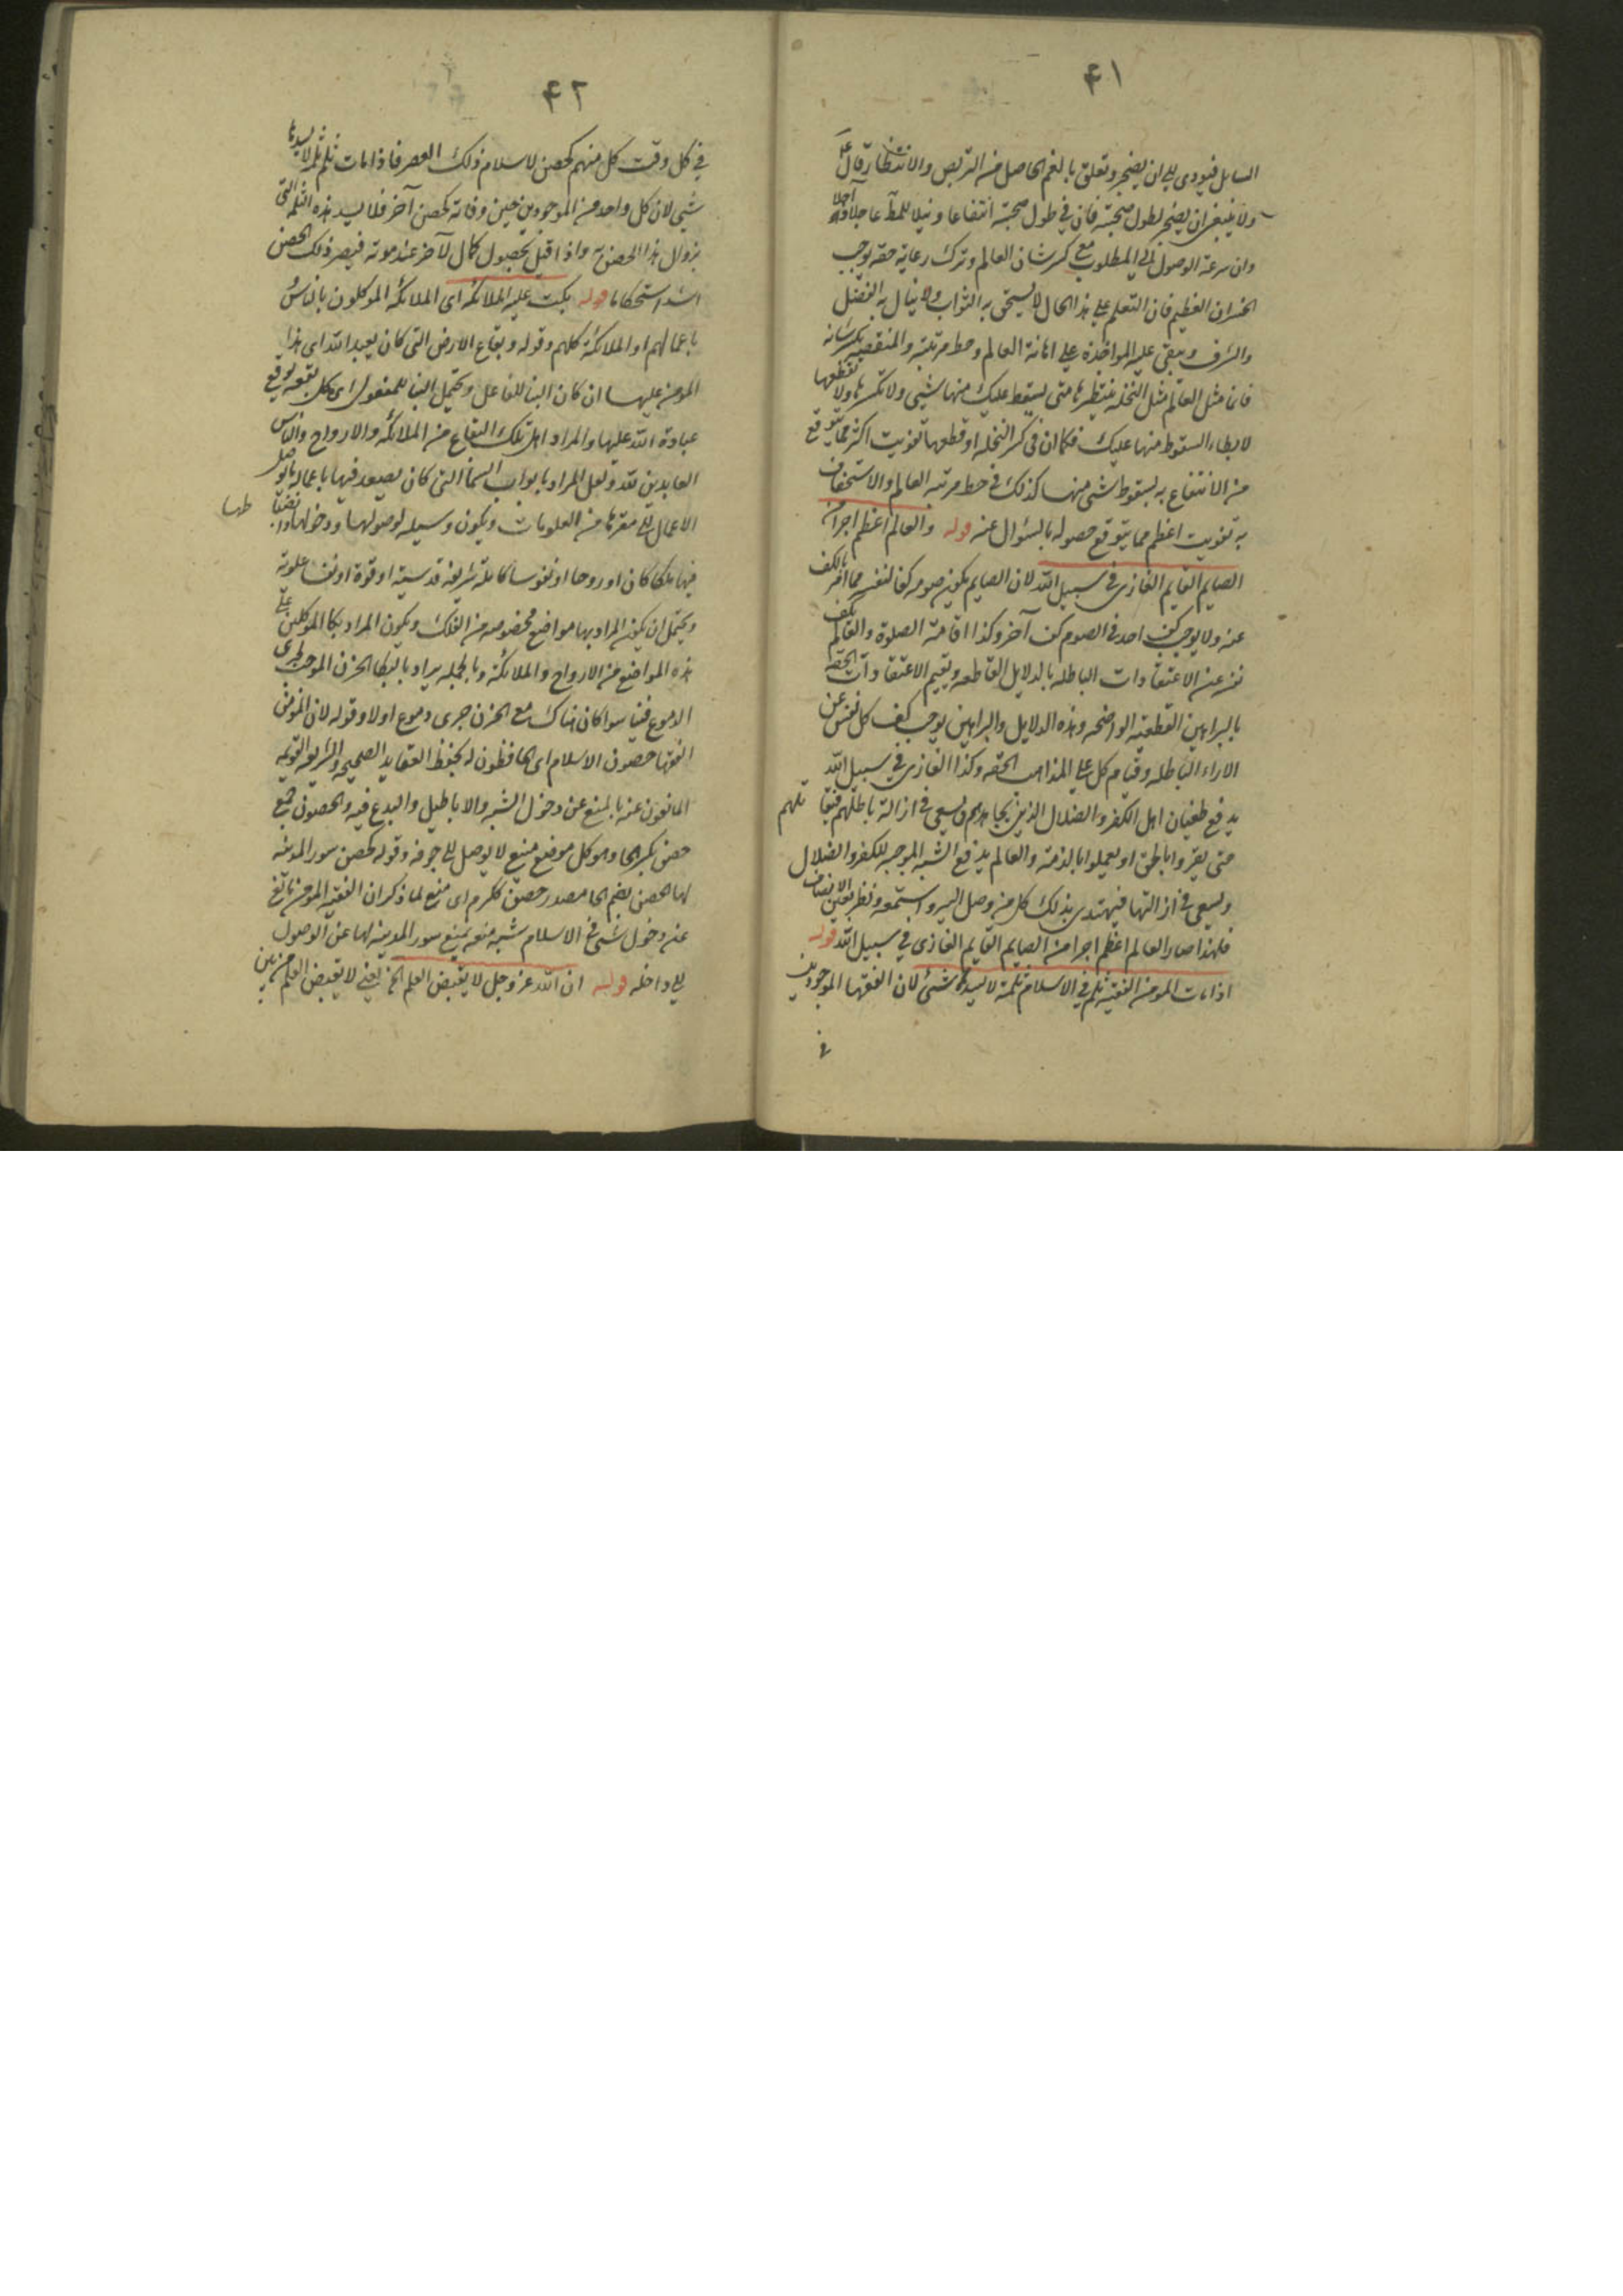 ۴۱
السايل فيؤدى الى ان يضجر وتعلق بالغم الحاصل من التربص والانتظار قال
ولا ينبغى ان يضجر لطول صحبته فان فى طول صحبته انتفاعا ونيلا للمآ عاجلا وآجلا
وان سرعة الوصول الى المطلوب مع كسر شان العالم وترك رعاية حقه يوجب
الخسران العظيم فان التعلم على هذا الحال لا يستحق به الثواب ولا ينال به الفضل
والشرف ويبقى عليه المواخذة على اهانة العالم وحط مرتبته والمنقصه بكسر شانه
فان مثل العالم مثل النخله ننتظرها متى يسقط عليك منها شئ ولا تكسرها ولا تقطعها
لابطاء السقوط منها عليك فكما ان فى كسر النخله او قطعها تفويت اكثر مما يتوقع
من الانتفاع به بسقوط شئ منها كذلك فى حط مرتبه العالم والاستخفاف
به تفويت اعظم مما يتوقع حصوله بالسؤال عنه قوله والعالم اعظم اجرا من
الصايم القايم الغازى فى سبيل الله لان الصايم يكون صومه كفا لنفسه مما امر بالكف
عنه ولا يوجب كف احد فى الصوم كف آخر وكذا اقامة الصلوة والعالم يكف
نفسه عن الاعتقادات الباطله بالدلايل القاطعه ويقيم الاعتقادات الحقه
بالبراهين القطعيه الواضحه وهذه الدلايل والبراهين يوجب كف كل نفس عن
الاراء الباطله وقيام كل على المذاهب الحقه وكذا الغازى فى سبيل الله
يدفع طغيان اهل الكفر والضلال الذين يجاهدهم ويسعى فى ازالة باطلهم فيقاتلهم
حتى يقروا بالحق او يعملوا بالذمة والعالم يدفع الشبه الموجبه للكفر والضلال
ويسعى فى ازالتها فيهتدى بذلك كل من وصل اليه واستمعه ونظر بعين الانصاف
فلهذا صار العالم اعظم اجرا من الصايم القايم الغازى فى سبيل الله قوله
اذا مات المومن الفقيه ثلم فى الاسلام ثلمة لا يسدها شئ لان الفقها الموجودين
فى
۴۲
فى كل وقت كل منهم كحصن لاسلام ذلك العصر فاذا مات ثلم ثلمة لا يسدها
شئ لان كل واحد من الموجودين حين وفاته كحصن آخر فلا يسد هذه الثلمه التى
بزوال هذا الحصن واذا قيل بحصول كمال لآخر عند موته فيصير ذلك الحصن
اشد استحكاما قوله بكت عليه الملائكه اى الملائكه الموكلون بالناس
باعمالهم او الملائكة كلهم وقوله وبقاع الارض التى كان يعبد الله اى هذا
المومن عليها ان كان البنا للفاعل ويحتمل البنا للمفعول اى كل بقعه يوقع
عبادة الله عليها والمراد اهل تلك البقاع من الملائكه والارواح والناس
العابدين لله ولعل المراد بابواب السما التى كان يصعد فيها باعماله ما يوصل
الاعمال الى مقرها من العلويات ويكون وسيله لوصولها ودخولها وانضباطها
فيها ملكا كان او روحا او نفوسا كاملة شريفه قدسية او قوة او نفسا علوية
ويحتمل ان يكون المراد بها مواضع مخصوصه من الفلك ويكون المراد بكا الموكلين على
هذه المواضع من الارواح والملائكة وبالجمله يراد بالبكا الحزن الموجب لجرى
الدموع فينا سوا كان هناك مع الحزن جرى دموع اولا وقوله لان المؤمنين
الفقها حصون الاسلام اى الحافظون له بحفظ العقايد الصحيحه والشريعه القويمه
المانعون عنه بالمنع عن دخول الشبه والاباطيل والبدع فيه والحصون جمع
حصن بكسر الحا وهو كل موضع منيع لا يوصل الى جوفه وقوله كحصن سور المدينه
لها الحصن بضم الحا مصدر حصن ككرم اى منع لما ذكر ان الفقيه المومن مانع
عنه دخول شئ فى الاسلام شبه منعه بمنع سور المدينه لها عن الوصول
الى داخله قوله ان الله عز وجل لا يقبض العلم الخ يعنى لا يقبض العلم من بين